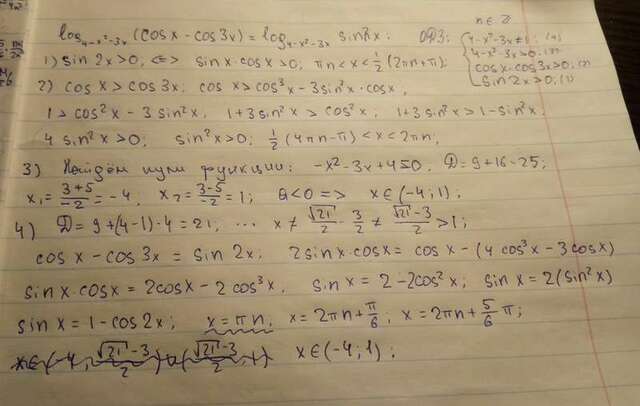 log₄₋ₓ²₋₃ₓ (cos x - cos 3x) = log₄₋ₓ²₋₃ₓ sin 2x; ОДЗ: n ∈ Z
{ 4-x²-3x ≠ 1; (4)
4-x²-3x > 0; (3)
cos x - cos 3x > 0; (2)
sin 2x > 0; (1)
1) sin 2x > 0; <=> sin x · cos x > 0; πn < x < 1/2 (2πn + π);
2) cos x > cos 3x; cos x > cos³x - 3 sin²x · cos x,
1 > cos²x - 3 sin²x, 1 + 3 sin²x > cos²x, 1 + 3 sin²x > 1 - sin²x,
4 sin²x > 0; sin²x > 0; 1/2 (4πn - π) < x < 2πn;
3) Найдём нули функции: -x² - 3x + 4 = 0, D = 9 + 16 = 25;
x₁ = (3+5)/-2 = -4, x₂ = (3-5)/-2 = 1; a < 0 => x ∈ (-4; 1);
4) D = 9 + (4-1)·4 = 21; ... x ≠ √21/2 - 3/2 ≠ (√21 - 3)/2 > 1;
cos x - cos 3x = sin 2x; 2 sin x · cos x = cos x - (4 cos³x - 3 cos x)
sin x · cos x = 2 cos x - 2 cos³x, sin x = 2 - 2 cos²x; sin x = 2 (sin²x)
sin x = 1 - cos 2x; x = πn; x = 2πn + π/6; x = 2πn + 5/6 π;
x ∈ (-4; (√21 - 3)/2) ∪ ((√21 - 3)/2; 1) x ∈ (-4; 1);